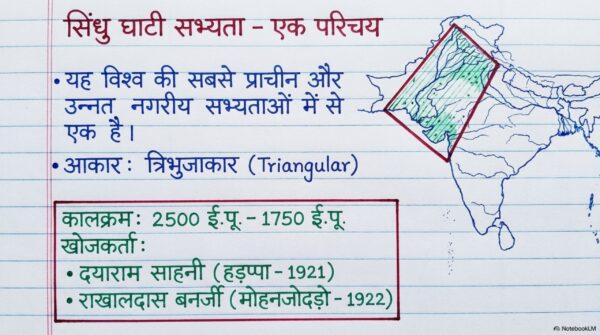 सिंधु घाटी सभ्यता – एक परिचय
• यह विश्व की सबसे प्राचीन और
उन्नत नगरीय सभ्यताओं में से
एक है।
• आकार: त्रिभुजाकार (Triangular)
कालक्रम: 2500 ई.पू. – 1750 ई.पू.
खोजकर्ता:
• दयाराम साहनी (हड़प्पा – 1921)
• राखालदास बनर्जी (मोहनजोदड़ो – 1922)
NotebookLM